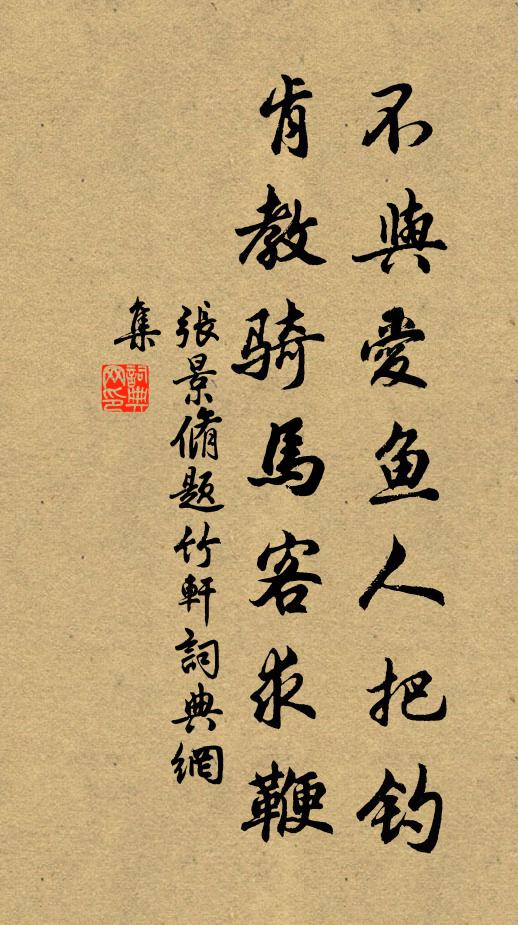 不與愛魚人把釣
肯教騎馬客求鞭
張景脩題竹軒詞典網
集
詞典
网印